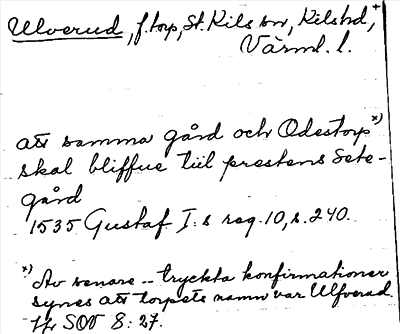 Ulverud, f. torp, St. Kils sn, Kils hd,+
Värml. l.
att samma gård och Odestorp x)
skal bliffue till prestens Sete-
gård
1535 Gustaf I:s reg. 10, s. 240.
x) Av senare -- tryckta konfirmationer
synes att torpets namn var Ulfverud.
Jfr SOV 8:27.